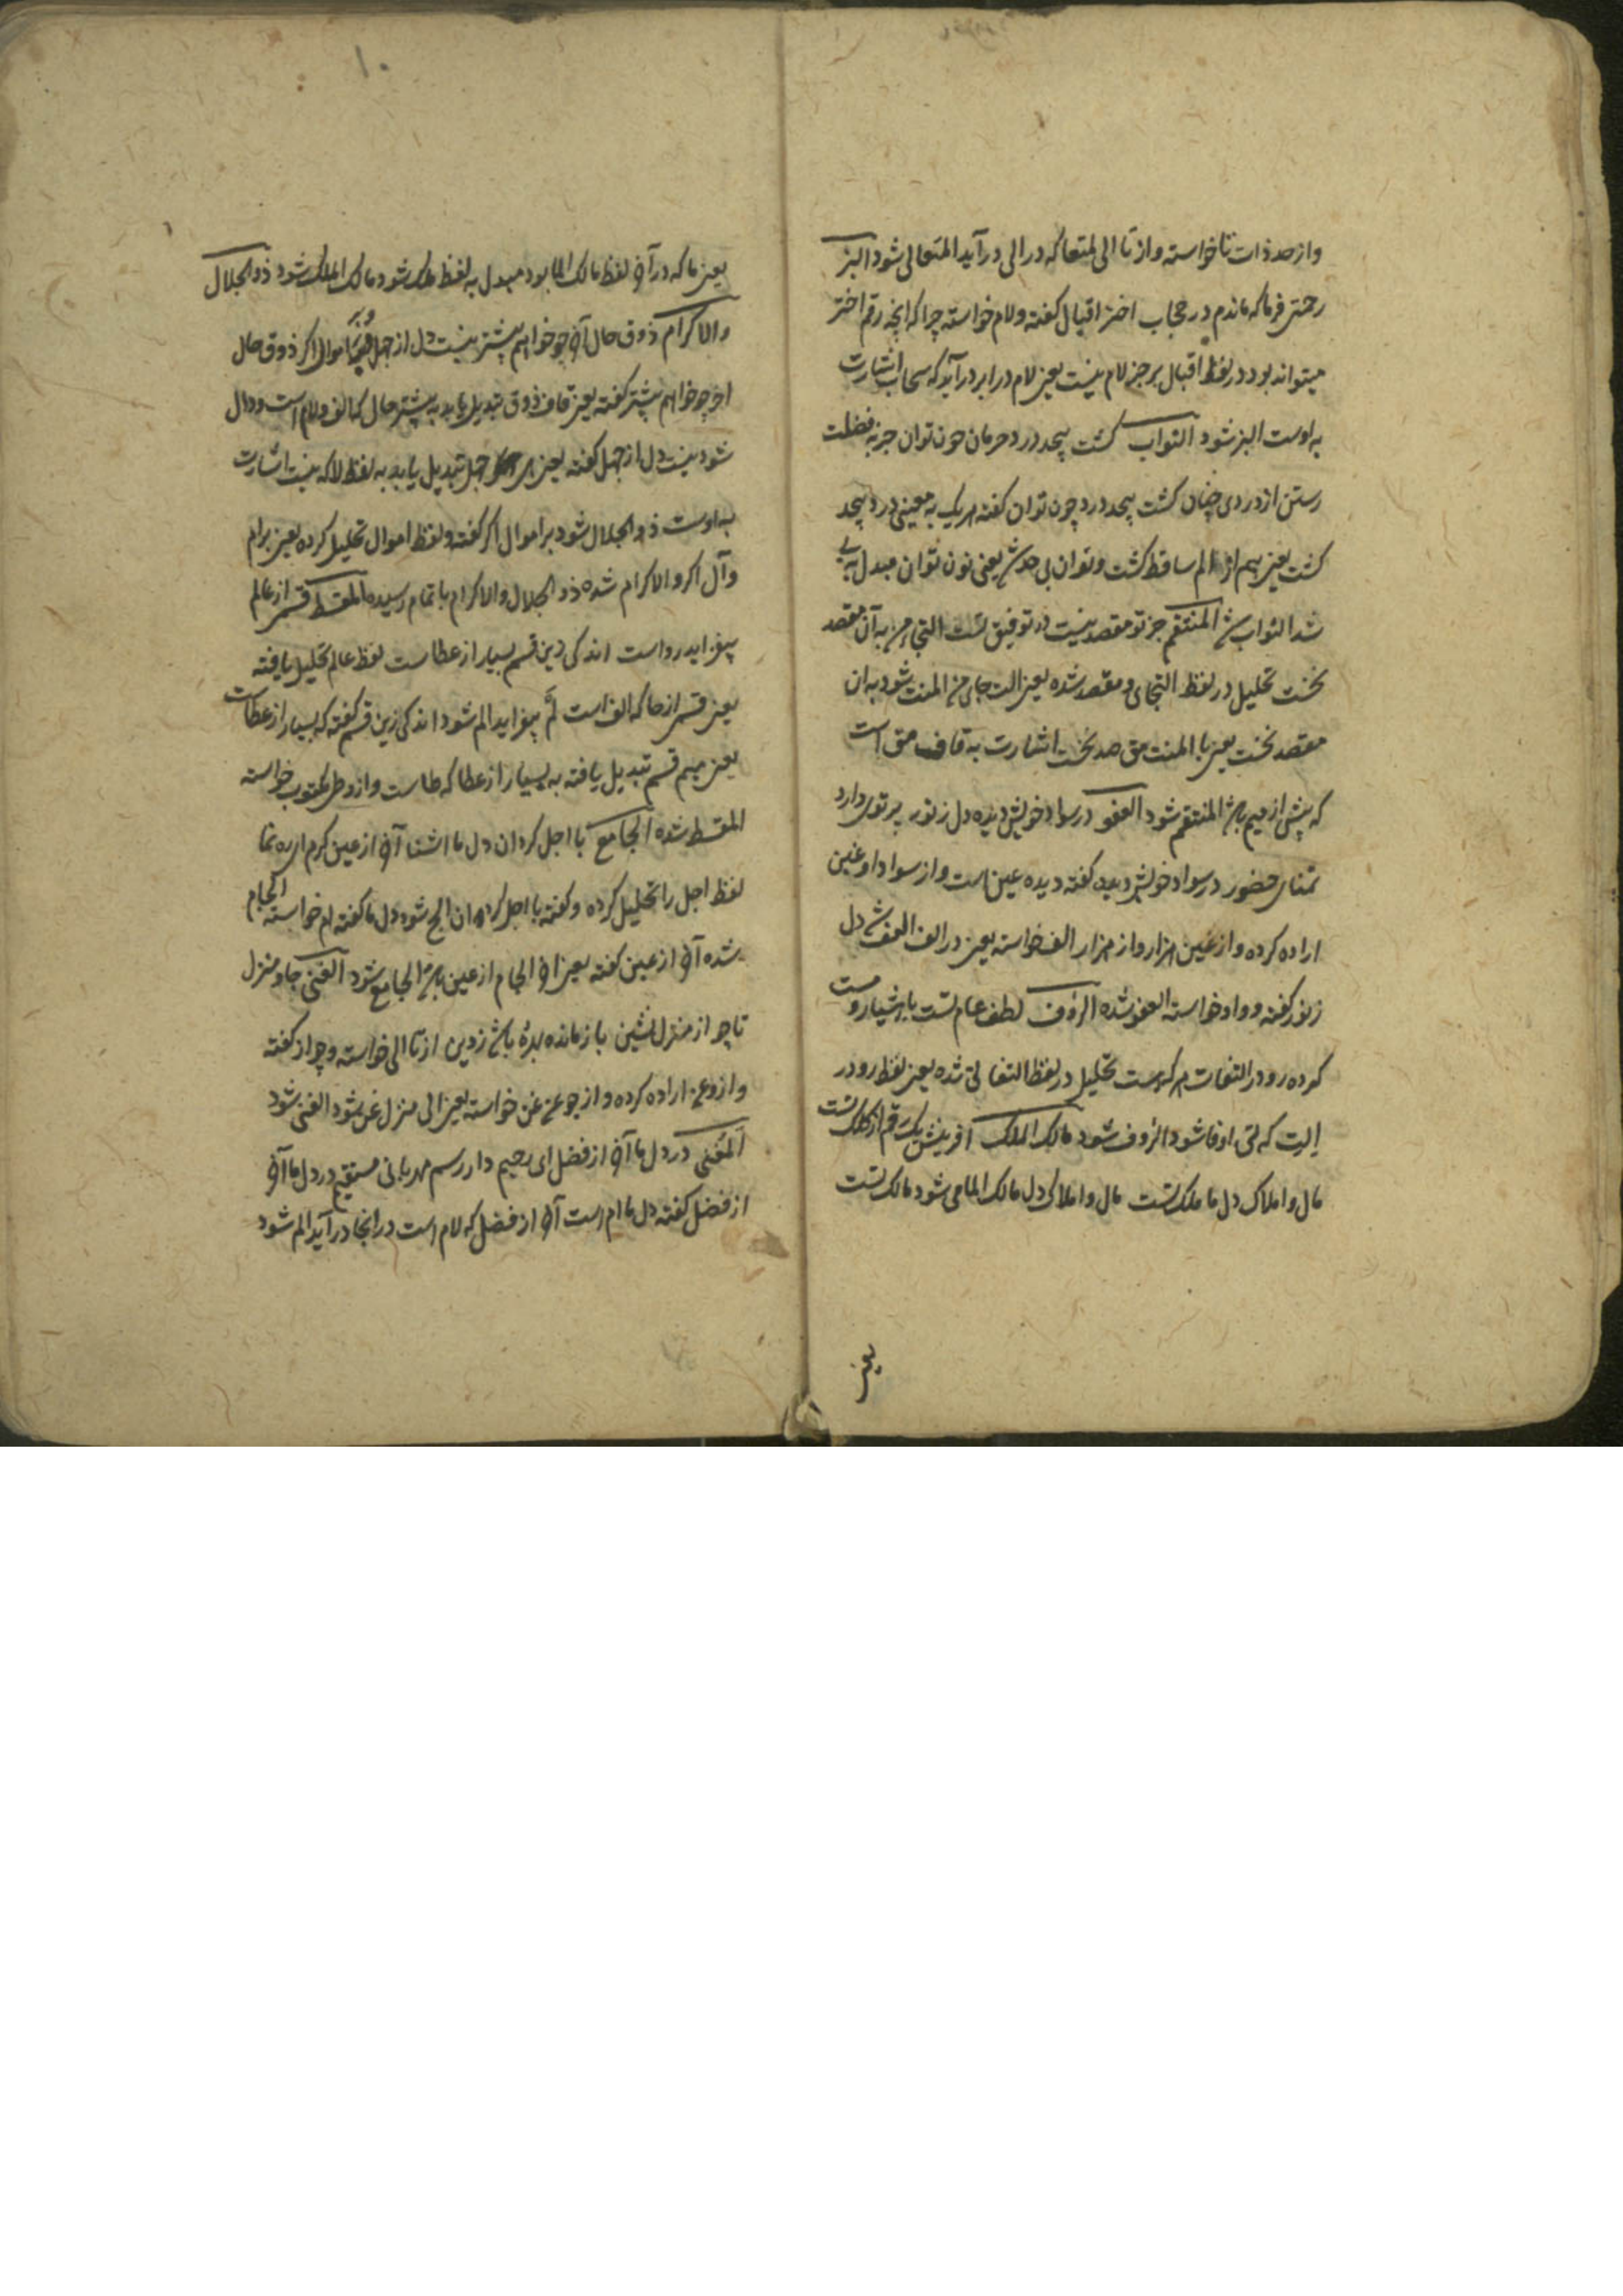 واز صد ذات تا خواسته واز تا الی لمتعا که در الی در آید المتعالی شود البر
رحمتی فرما که ماندم در حجاب اختر اقبال کفته ولام خواسته چرا که انچه رقم اختر
میتواند بود در لفظ اقبال بر جز لام نیست یعنی لام در ابر در آید که سحاب اشارت
به اوست البر شود التواب کشت بیحد درد حرمان چون توان جز به فضلت
رستن از دردی چنان کشت بیحد درد چون توان کفته هر یک به معینی درد بیحد
کشت یعنی میم از الم ساقط کشت وتوان بی حدش یعنی نون توان مبدل به بی
شد التواب المنتقم جز تو مقصد نیست در توفیق تست التجای من به آن مقصد
نخست تحلیل در لفظ التجای ومقصد شده یعنی الت جای من المنت شود به ان
مقصد نخست یعنی با المنت مق صد نخست اشارت به قاف مق است
که پیش از میم المنتقم شود العفو در سواد خویش دیده دل ز نور پرتوی دارد
تمنای حضور در سواد خویش دیده کفته دیده عین است واز سواد او عین
اراده کرده واز عین هزار واز هزار الف خواسته یعنی در الف العف دل
ز نور کفته و واو خواسته العفو شده الرؤف لطف عام تست با هشیار و مست
کرده رو در التفات هر که هست تحلیل در لفظ التفا تی شده یعنی لفظ رو در
الت که تی او فا شود الرؤف شود مالک الملک آفرینش یک رقم از کلک تست
مال و املاک دل ما ملک تست مال و املاک دل مالک الما می شود مالک تست
یعنی
۱۰
یعنی ما که در آخر لفظ مالک الما بود مبدل به لفظ ملک شود مالک الملک شود ذو الجلال
والاکرام ذوق حال آخر چو خواهم بیشتر نیست دل از جهل اموال اکر ذوق حال
اخر چو خواهم بیشتر کفته یعنی قاف ذوق تبدیل یابد به بیشتر حال که الف ولام است ودال
شود نیست دل از جهل کفته یعنی جهل تبدیل یابد به لفظ لا که نیست اشارت
به اوست ذو الجلال شود بر اموال اکر کفته ولفظ اموال تحلیل کرده یعنی برام
وآل اکر والاکرام شده ذو الجلال والاکرام باتمام رسیده المقسط قسمی از عالم
بیفزاید رواست اندکی زین قسم بسیار از عطاست لفظ عالم تحلیل یافته
یعنی قسمی از عا که الف است لم بیفزاید الم شود اندکی زین قسم کفته که بسیار از عطاست
یعنی میم قسم تبدیل یافته به بسیار از عطا که طاست واز وطر مکتوب خواسته
المقسط شده الجامع با اجل کردان دل ما اشنا آخر از عین کرم ای ره نما
لفظ اجل را تحلیل کرده و کفته با اجل کردان الج شود دل ما کفته ام خواسته الجام
شده آخر از عین کفته یعنی اخر الجام از عین الجامع شود الغنی جا ومنزل
تا چو از منزل نشین باز مانده بدره زدین از تا الی خواسته وچو از کفته
واز وعن اراده کرده واز چو عن غن خواسته یعنی الی منزل غن شود الغنی شود
المغنی در دل ما آخر از فضل ای رحیم دار رسم مهربانی مستقیم در دل ما آخر
از فضل کفته دل ما ام است آخر از فضل که لام است در انجا در آید الم شود